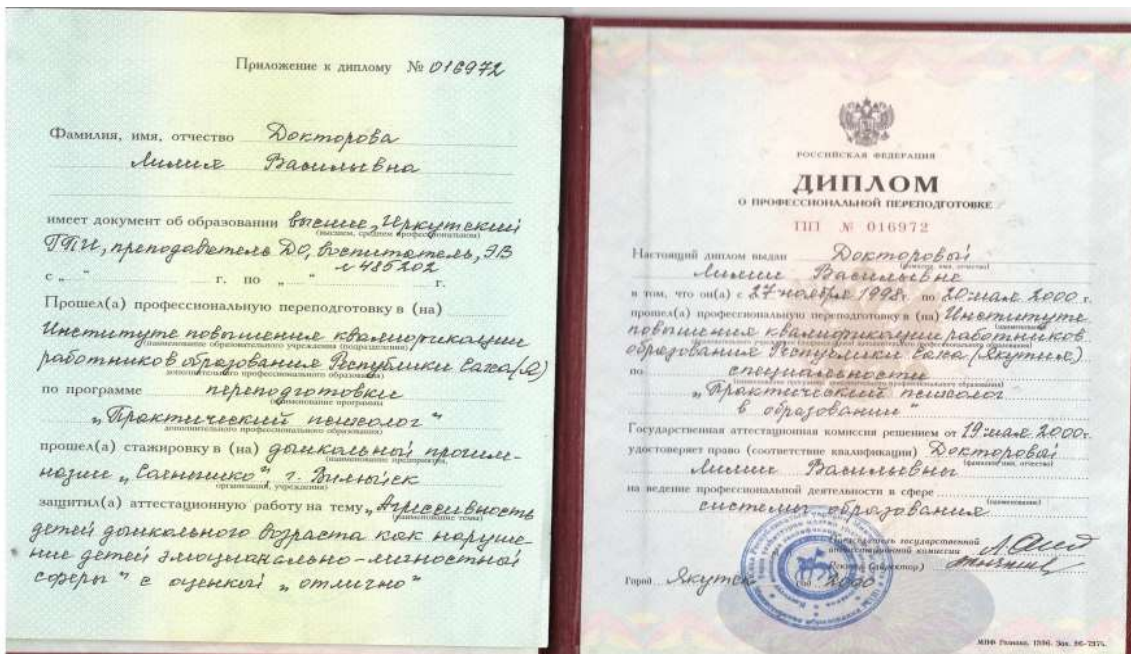 Приложение к диплому № 016972
Фамилия, имя, отчество Докторова
Лилия Васильевна
имеет документ об образовании высшее, Иркутский
(высшем, среднем профессиональном)
ГПИ, преподаватель ДО, воспитатель, ЭВ
№ 485202
с „ “ г. по „ “ г.
Прошел(а) профессиональную переподготовку в (на)
Институте повышения квалификации
(наименование образовательного учреждения (подразделения)
работников образования Республики Саха/Я)
дополнительного профессионального образования)
по программе переподготовки
(наименование программы
„Практический психолог“
дополнительного профессионального образования)
прошел(а) стажировку в (на) дошкольной прогим-
(наименование предприятия,
назии „Солнышко“ г. Вилюйск
организации, учреждения)
защитил(а) аттестационную работу на тему „Агрессивность
(наименование темы)
детей дошкольного возраста как наруше-
ние детей эмоционально-личностной
сферы“ с оценкой „отлично“
РОССИЙСКАЯ ФЕДЕРАЦИЯ
ДИПЛОМ
О ПРОФЕССИОНАЛЬНОЙ ПЕРЕПОДГОТОВКЕ
ПП № 016972
Настоящий диплом выдан Докторовой
(фамилия, имя, отчество)
Лилии Васильевне
в том, что он(а) с 27 ноября 1998г. по 20 мая 2000 г.
прошел(а) профессиональную переподготовку в (на) Институте
(наименование
повышения квалификации работников
образования Республики Саха (Якутия)
по специальности
(наименование программы дополнительного профессионального образования)
„Практический психолог
в образовании“
Государственная аттестационная комиссия решением от 19 мая 2000г.
удостоверяет право (соответствие квалификации) Докторовой
(фамилия, имя, отчество)
Лилии Васильевны
на ведение профессиональной деятельности в сфере
(наименование)
системы образования
Председатель государственной
аттестационной комиссии
Ректор (директор)
Город Якутск год 2000
МПФ Гознака. 1996.